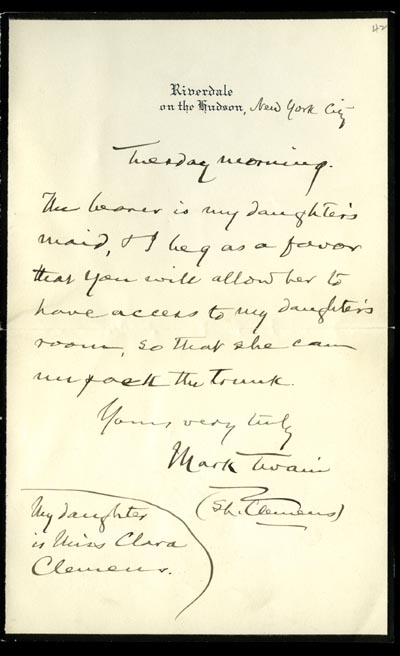 42
Riverdale
on the Hudson, New York City
Tuesday morning.
The bearer is my daughter's
maid, & I beg as a favor
that you will allow her to
have access to my daughter's
room, so that she can
unpack the trunk.
Yours very truly
Mark Twain
(SL. Clemens)
My daughter
is Miss Clara
Clemens.